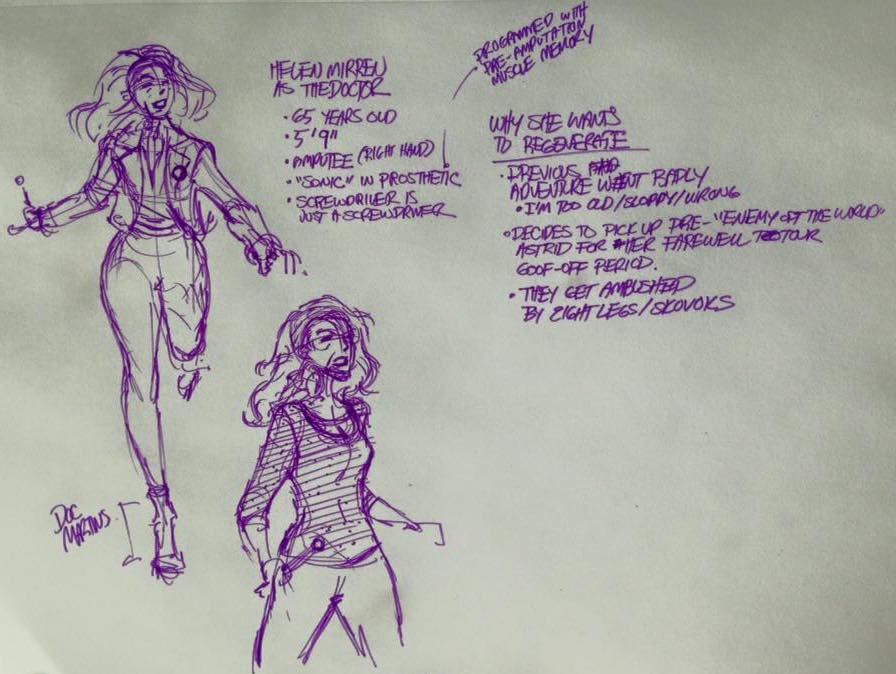 HELEN MIRREN
AS THE DOCTOR
• 65 YEARS OLD
• 5'9"
• AMPUTEE (RIGHT HAND)
• "SONIC" IN PROSTHETIC
• SCREWDRIVER IS
JUST A SCREWDRIVER
PROGRAMMED WITH
PRE-AMPUTATION
MUSCLE MEMORY
WHY SHE WANTS
TO REGENERATE
• PREVIOUS
ADVENTURE WENT BADLY
• I'M TOO OLD/SLOPPY/WRONG
• DECIDES TO PICK UP PRE-"ENEMY OF THE WORLD"
ASTRID FOR HER FAREWELL TOUR
GOOF-OFF PERIOD.
• THEY GET AMBUSHED
BY EIGHT LEGS/SKOVOKS
DOC
MARTINS